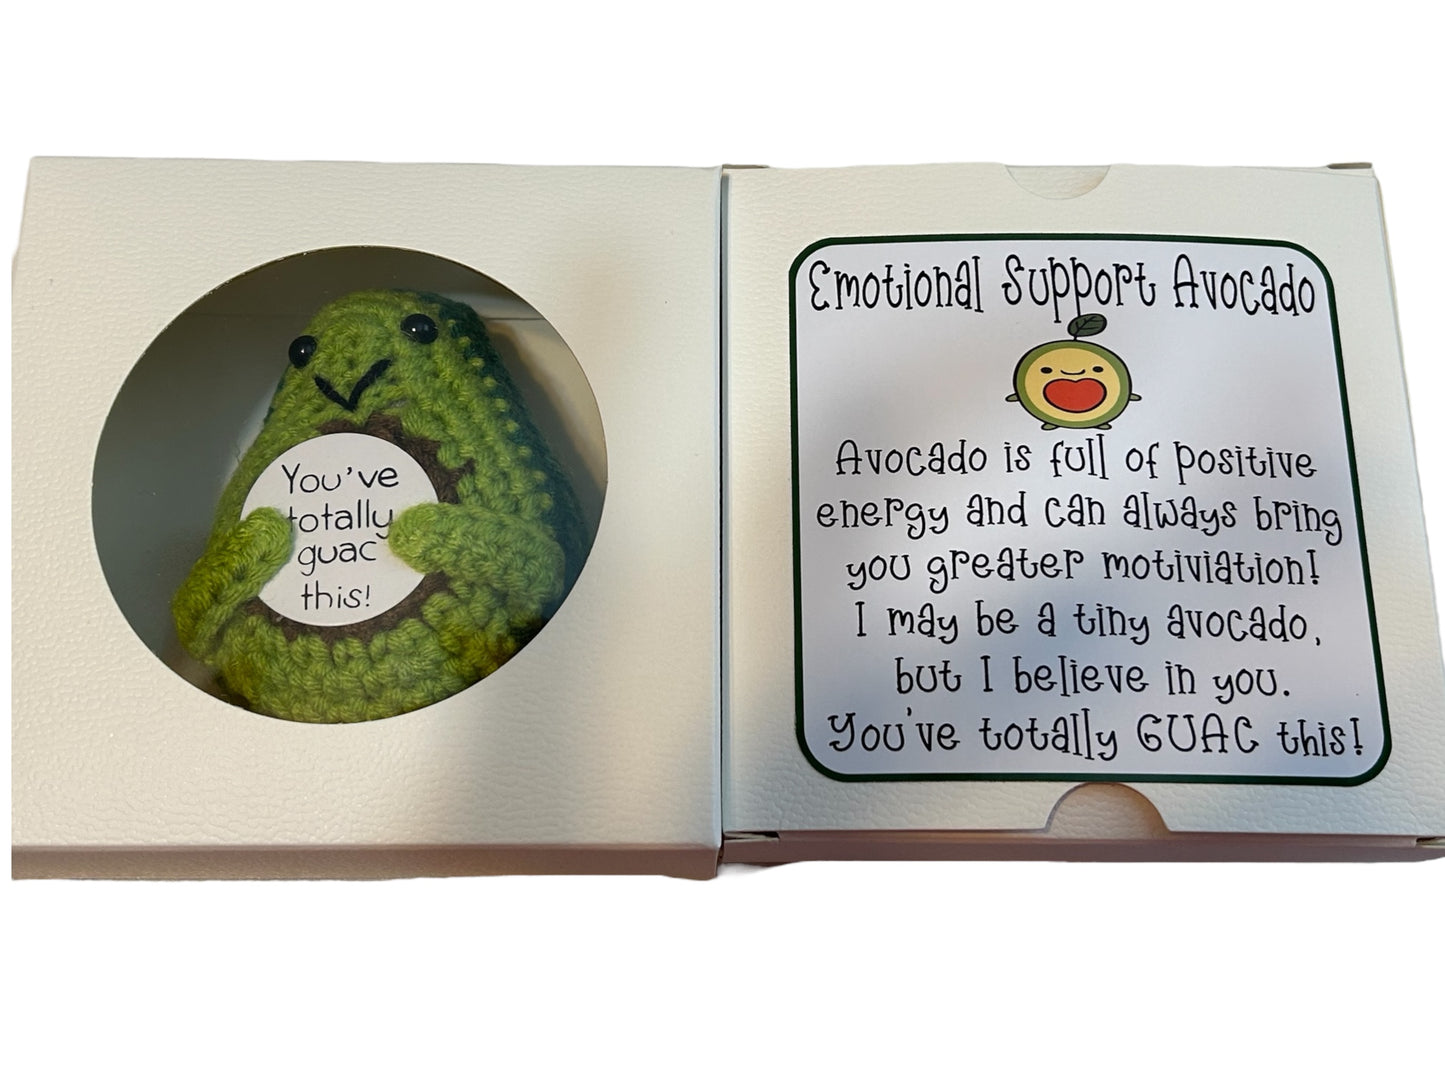 You've
totally
guac
this!
Emotional Support Avocado
Avocado is full of positive
energy and can always bring
you greater motiviation!
I may be a tiny avocado,
but I believe in you.
You've totally GUAC this!